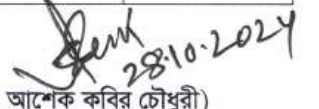 28.10.2024
আশেক কবির চৌধুরী)